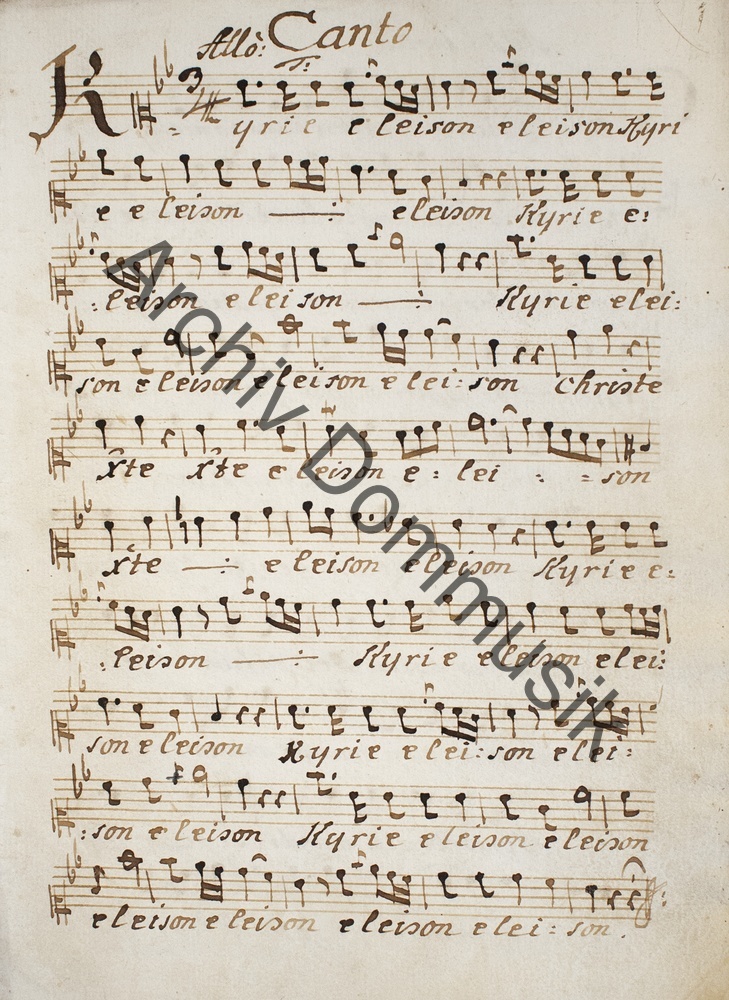 Allo: Canto
T:
Kyrie eleison eleison Kyri
e eleison —:— eleison Kyrie e:
:leison eleison —:— Kyrie elei:
son eleison eleison elei:son Christe
Xte Xte eleison e:lei : = son
Xte —:— eleison eleison Kyrie e:
:leison —:— Kyrie eleison elei:
son eleison Kyrie elei:son elei:
:son eleison Kyrie eleison eleison
eleison eleison eleison elei:son.
Archiv Dommusik